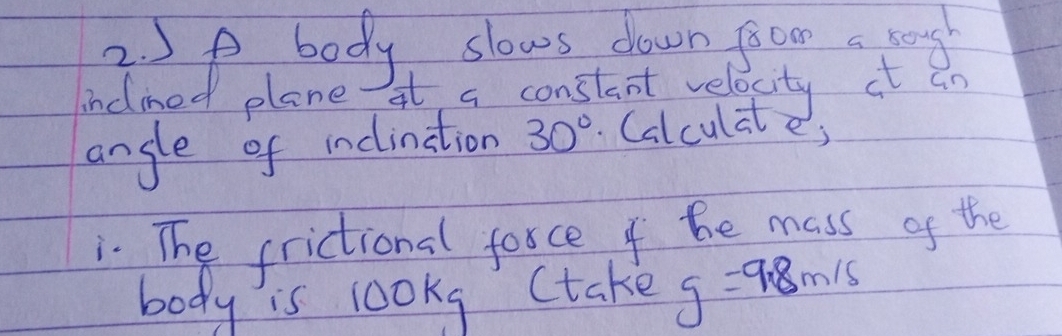 2.) A body slows down from a rough
inclined plane at a constant velocity at an
angle of inclination 30°. Calculate;
i. The frictional force if the mass of the
body is 100kg (take g = 9.8m/s